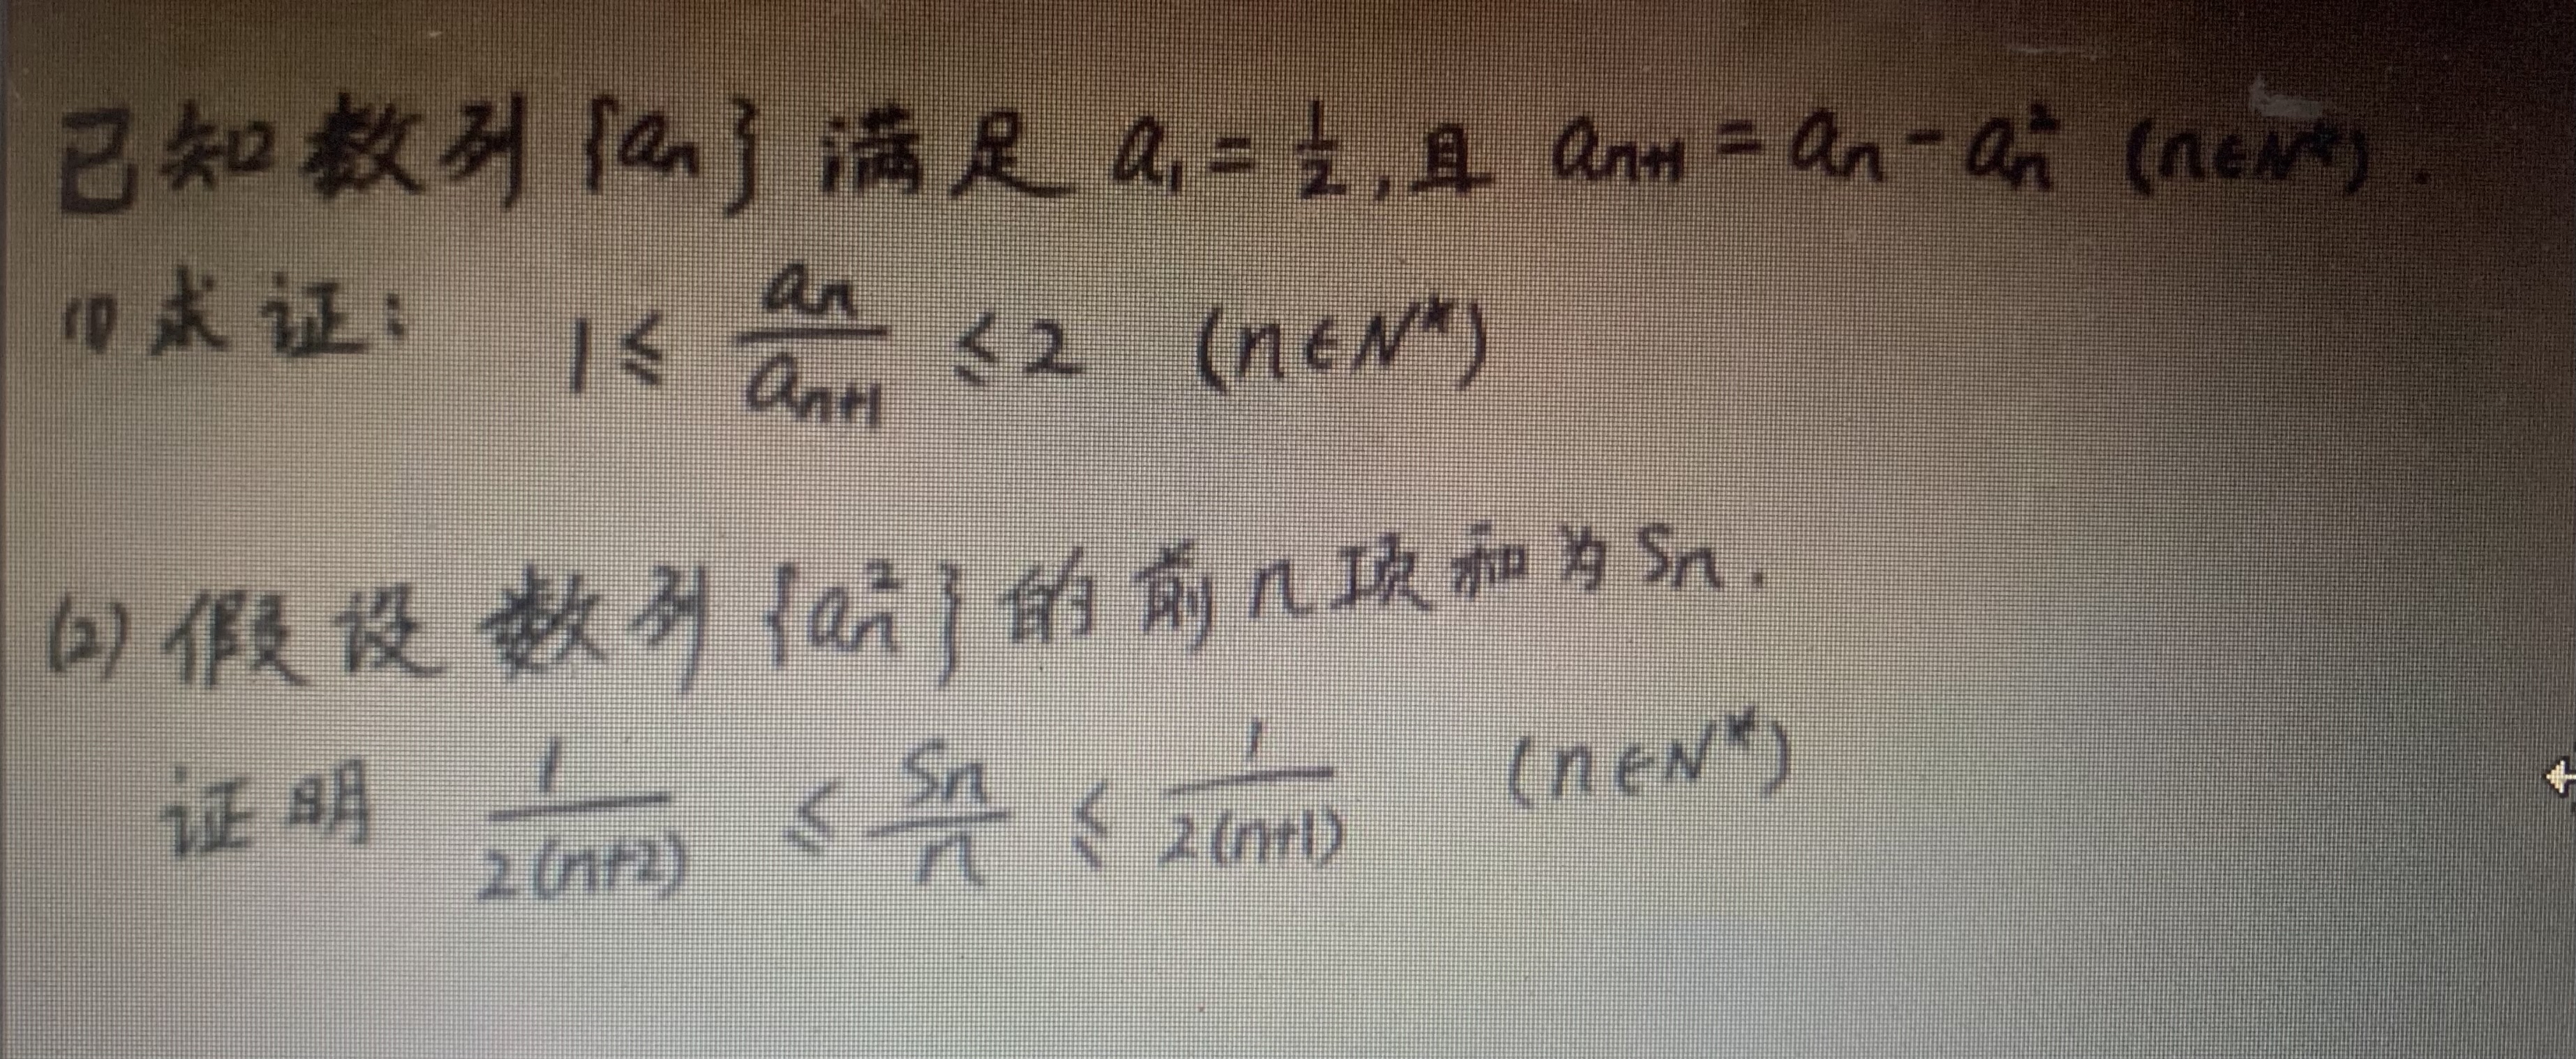 已知数列 {aₙ} 满足 a₁ = 1/2, 且 aₙ₊₁ = aₙ - aₙ² (n∈N*).
(1) 求证: 1 ≤ aₙ/aₙ₊₁ ≤ 2 (n∈N*)
(2) 假设数列 {aₙ²} 的前n项和为 Sₙ.
证明 1/2(n+2) ≤ Sₙ/n ≤ 1/2(n+1) (n∈N*)